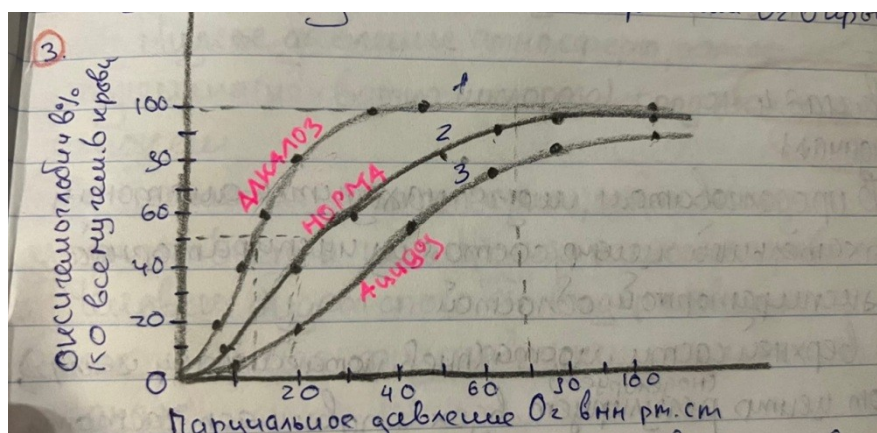 3.
Оксигемоглобин в %
ко всему гем. в крови
100
80
60
40
20
0
1
2
3
АЛКАЛОЗ
НОРМА
АЦИДОЗ
20 40 60 80 100
Парциальное давление O₂ в мм рт. ст